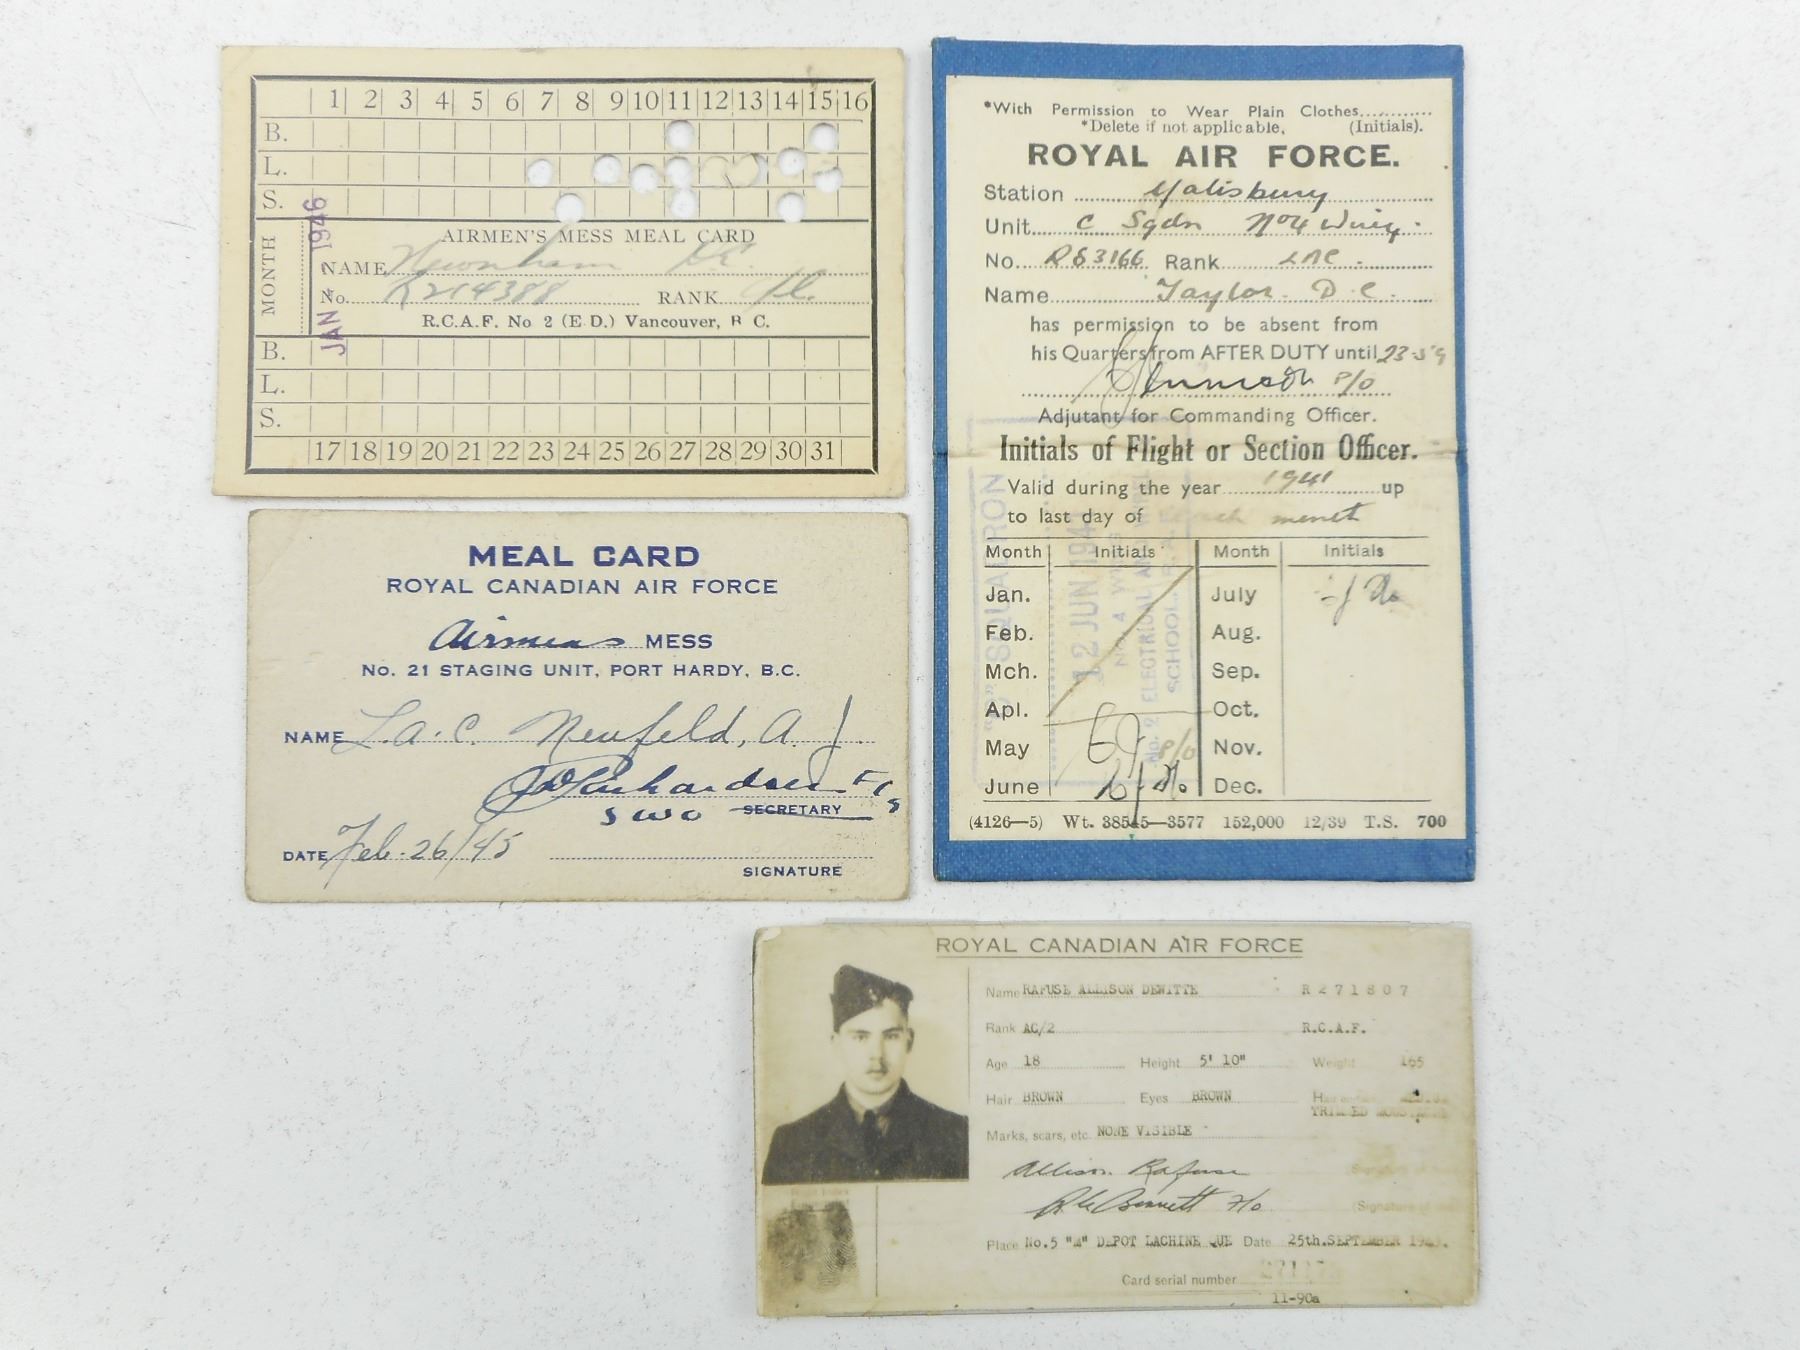 1 2 3 4 5 6 7 8 9 10 11 12 13 14 15 16
B.
L.
S.
MONTH
JAN 1946
AIRMEN'S MESS MEAL CARD
NAME
No. R214388 RANK
R.C.A.F. No 2 (E.D.) Vancouver, B C.
B.
L.
S.
17 18 19 20 21 22 23 24 25 26 27 28 29 30 31
MEAL CARD
ROYAL CANADIAN AIR FORCE
Airmens MESS
No. 21 STAGING UNIT, PORT HARDY, B.C.
NAME L.A.C. Neufeld, A. J.
SWO SECRETARY
DATE Feb. 26/45
SIGNATURE
*With Permission to Wear Plain Clothes............
*Delete if not applicable. (Initials).
ROYAL AIR FORCE.
Station
Unit C Sqdn No 4 Wing.
No. Rank LAC.
Name Taylor D C.
has permission to be absent from
his Quarters from AFTER DUTY until 23-59
P/O
Adjutant for Commanding Officer.
Initials of Flight or Section Officer.
Valid during the year 1941 up
to last day of each month
Month Initials Month Initials
Jan. July
Feb. Aug.
Mch. Sep.
Apl. Oct.
May P/O Nov.
June Dec.
SQUADRON
12 JUN 1941
No. 4 WING
No. 2 ELECTRICAL AND
SCHOOL
(4126—5) Wt. 38545—3577 152,000 12/39 T.S. 700
ROYAL CANADIAN AIR FORCE
Name RAFUSE ALLISON DEWITTE R271807
Rank AC/2 R.C.A.F.
Age 18 Height 5' 10" Weight 165
Hair BROWN Eyes BROWN
Marks, scars, etc. NONE VISIBLE
Allison Rafuse
Bennett F/O (Signature of
Place No.5 "M" DEPOT LACHINE QUE Date 25th.SEPTEMBER
Card serial number
11-90a